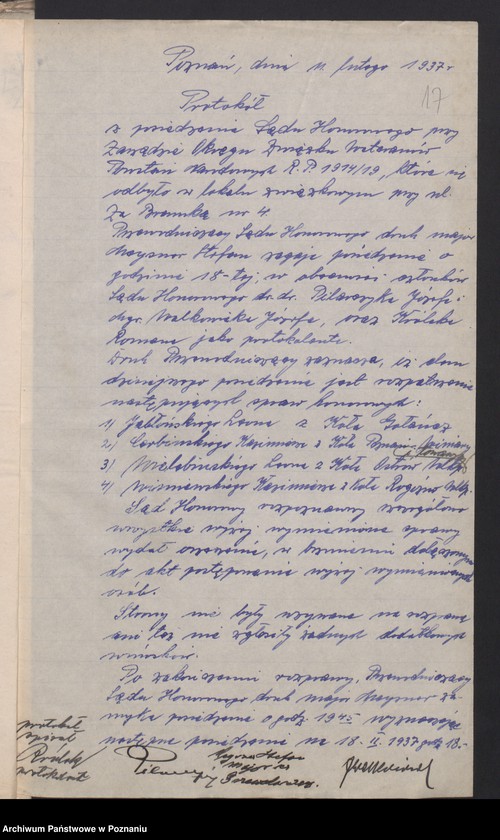 Poznań, dnia 11 lutego 1937 r
17
Protokół
z posiedzenia Sądu Honorowego przy
Zarządzie Okręgu Związku Weteranów
Powstań Narodowych R.P. 1914/19, które się
odbyło w lokalu związkowym przy ul.
Za Bramką nr 4.
Przewodniczący Sądu Honorowego druh major
Stefan zagaja posiedzenie o
godzinie 18-tej, w obecności członków
Sądu Honorowego dr. dr. Pilarczyka Józefa i
Walkowiaka Józefa, oraz Króla
Romana jako protokolanta.
Druh Przewodniczący zaznacza, iż celem
dzisiejszego posiedzenia jest rozpatrzenie
następujących spraw honorowych:
1) Jabłońskiego Leona z Koła Gołańcz
2) Kazimierza z Koła Poznań
3) Leona z Koła Ostrów Wlkp.
4) Wiśniewskiego Kazimierza z Koła Rogoźno Wlkp.
Sąd Honorowy rozpoznawszy szczegółowo
wszystkie wyżej wymienione sprawy
wydał orzeczenie, w brzmieniu dołączonym
do akt postępowania wyżej wymienionych
osób.
Strony nie były wzywane na rozprawę
ani też nie zgłosiły żadnych dodatkowych
wniosków.
Po zakończeniu rozprawy, Przewodniczący
Sądu Honorowego druh major za
myka posiedzenie o godz. 19 wyznaczając
następne posiedzenie na 18. II. 1937 godz 18.-
protokół
spisał
protokolant
Stefan
Major
Archiwum Państwowe w Poznaniu